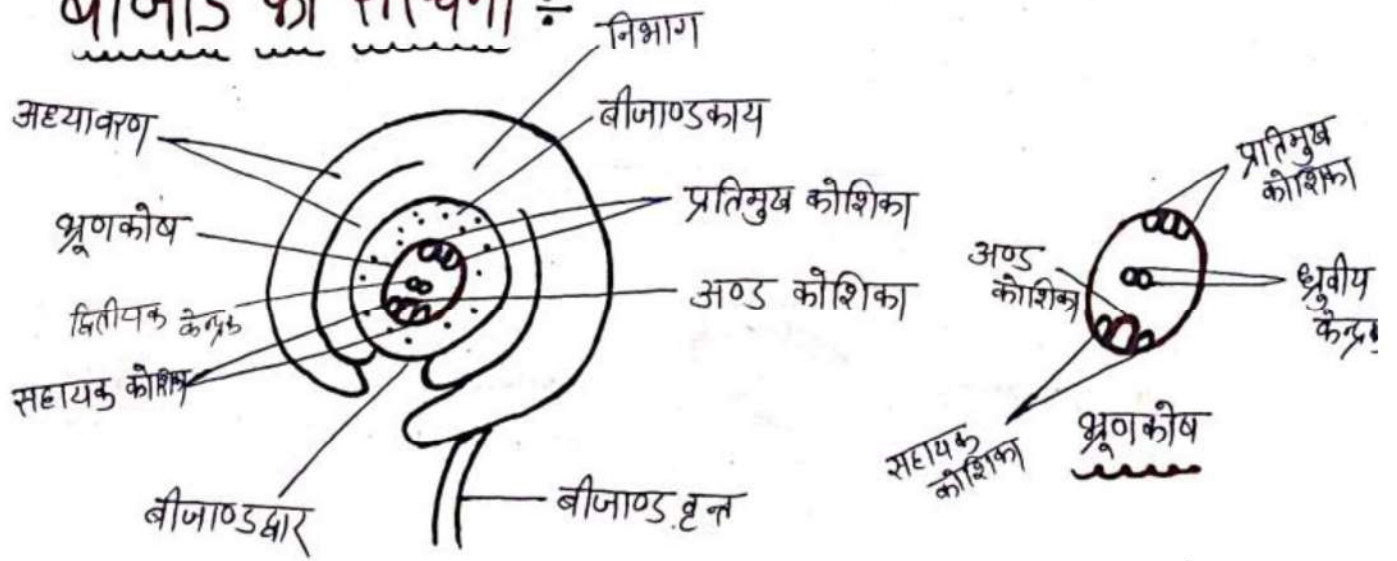 निभाग
अध्यावरण
बीजाण्डकाय
भ्रूणकोष
प्रतिमुख कोशिका
द्वितीयक केन्द्रक
अण्ड कोशिका
सहायक कोशिका
बीजाण्डद्वार
बीजाण्ड वृन्त
प्रतिमुख
कोशिका
अण्ड
कोशिका
ध्रुवीय
केन्द्रक
सहायक
कोशिका
भ्रूणकोष